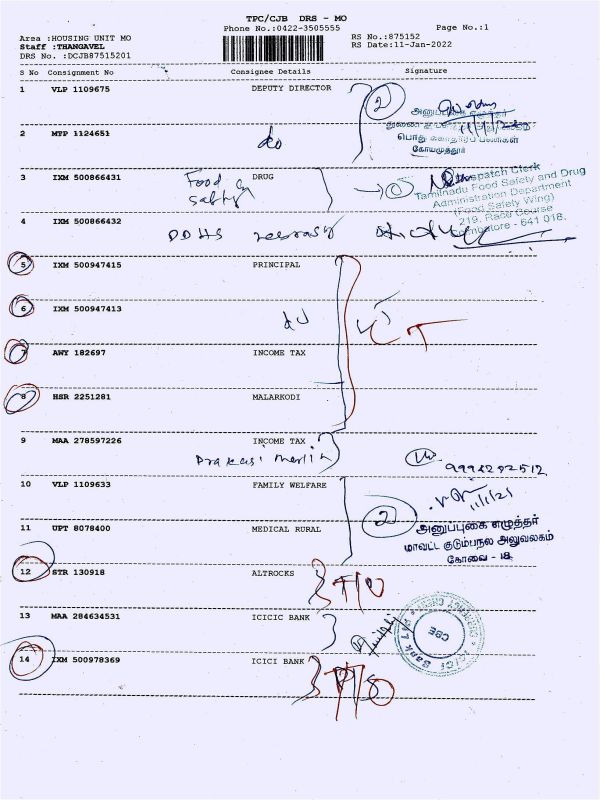 TPC/CJB DRS - MO
Phone No.:0422-3505555
Page No.:1
Area :HOUSING UNIT MO
RS No.:875152
Staff :THANGAVEL
RS Date:11-Jan-2022
DRS No. :DCJB87515201
S No Consignment No Consignee Details Signature
1 VLP 1109675 DEPUTY DIRECTOR
2
அனுப்புகை எழுத்தர்
2 MTP 1124651 do
பொது சுகாதாரப் பணிகள்
கோயமுத்தூர்
3 IXM 500866431 DRUG
Food &
safty
Despatch Clerk
Tamilnadu Food Safety and Drug
Administration Department
(Food Safety Wing)
219, Race Course
Coimbatore - 641 018.
4 IXM 500866432 DDHS
5 IXM 500947415 PRINCIPAL
6 IXM 500947413 do
7 AWY 182697 INCOME TAX
8 HSR 2251281 MALARKODI
9 MAA 278597226 INCOME TAX
Prakasi Merlin
10 VLP 1109633 FAMILY WELFARE
2
அனுப்புகை எழுத்தர்
11 UPT 8078400 MEDICAL RURAL
மாவட்ட குடும்பநல அலுவலகம்
கோவை - 18.
12 STR 130918 ALTROCKS
13 MAA 284634531 ICICIC BANK
ICICI Bank
CBE
14 IXM 500978369 ICICI BANK